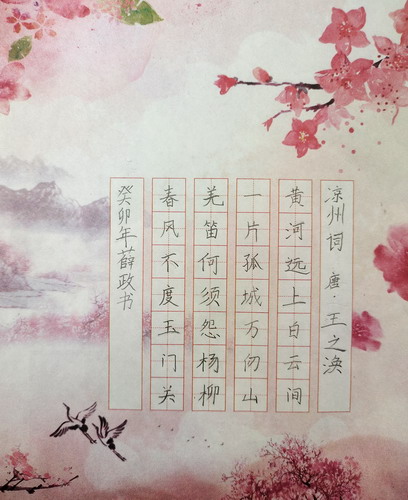 凉州词 唐·王之涣
黄河远上白云间
一片孤城万仞山
羌笛何须怨杨柳
春风不度玉门关
癸卯年薛政书